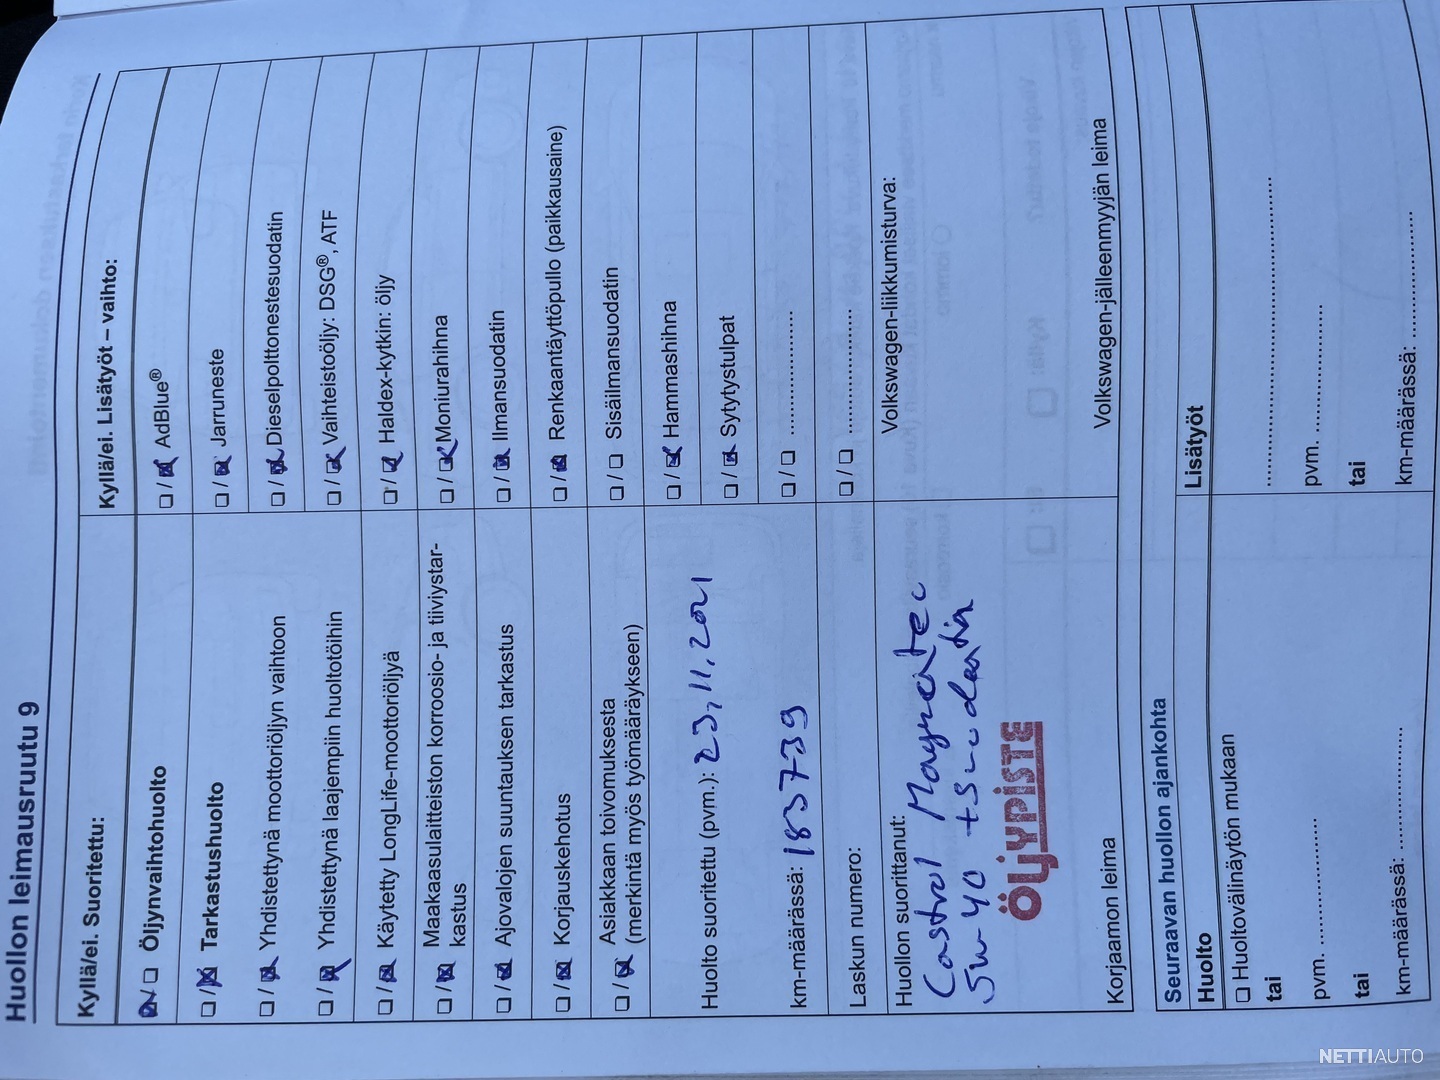 Huollon leimausruutu 9
Kyllä/ei. Suoritettu:
☒ / ☐ Öljynvaihtohuolto
☐ / ☒ Tarkastushuolto
☐ / ☒ Yhdistettynä moottoriöljyn vaihtoon
☐ / ☒ Yhdistettynä laajempiin huoltotöihin
☐ / ☒ Käytetty LongLife-moottoriöljyä
☐ / ☒ Maakaasulaitteiston korroosio- ja tiiviystar-
kastus
☐ / ☒ Ajovalojen suuntauksen tarkastus
☐ / ☒ Korjauskehotus
☐ / ☒ Asiakkaan toivomuksesta
(merkintä myös työmääräykseen)
Huolto suoritettu (pvm.): 23,11,2021
km-määrässä: 183739
Laskun numero:
Huollon suorittanut:
Castrol Magnatec
5w40 + suodatin
ÖLJYPISTE
Korjaamon leima
Kyllä/ei. Lisätyöt – vaihto:
☐ / ☒ AdBlue®
☐ / ☒ Jarruneste
☐ / ☒ Dieselpolttonestesuodatin
☐ / ☒ Vaihteistoöljy: DSG®, ATF
☐ / ☒ Haldex-kytkin: öljy
☐ / ☒ Moniurahihna
☐ / ☒ Ilmansuodatin
☐ / ☒ Renkaantäyttöpullo (paikkausaine)
☐ / ☐ Sisäilmansuodatin
☐ / ☒ Hammashihna
☐ / ☒ Sytytystulpat
☐ / ☐ ....................
☐ / ☐ ....................
Volkswagen-liikkumisturva:
Volkswagen-jälleenmyyjän leima
Seuraavan huollon ajankohta
Huolto
☐ Huoltovälinäytön mukaan
tai
pvm. ....................
tai
km-määrässä: ....................
Lisätyöt
..................................................
pvm. ....................
tai
km-määrässä: ....................
NETTIAUTO